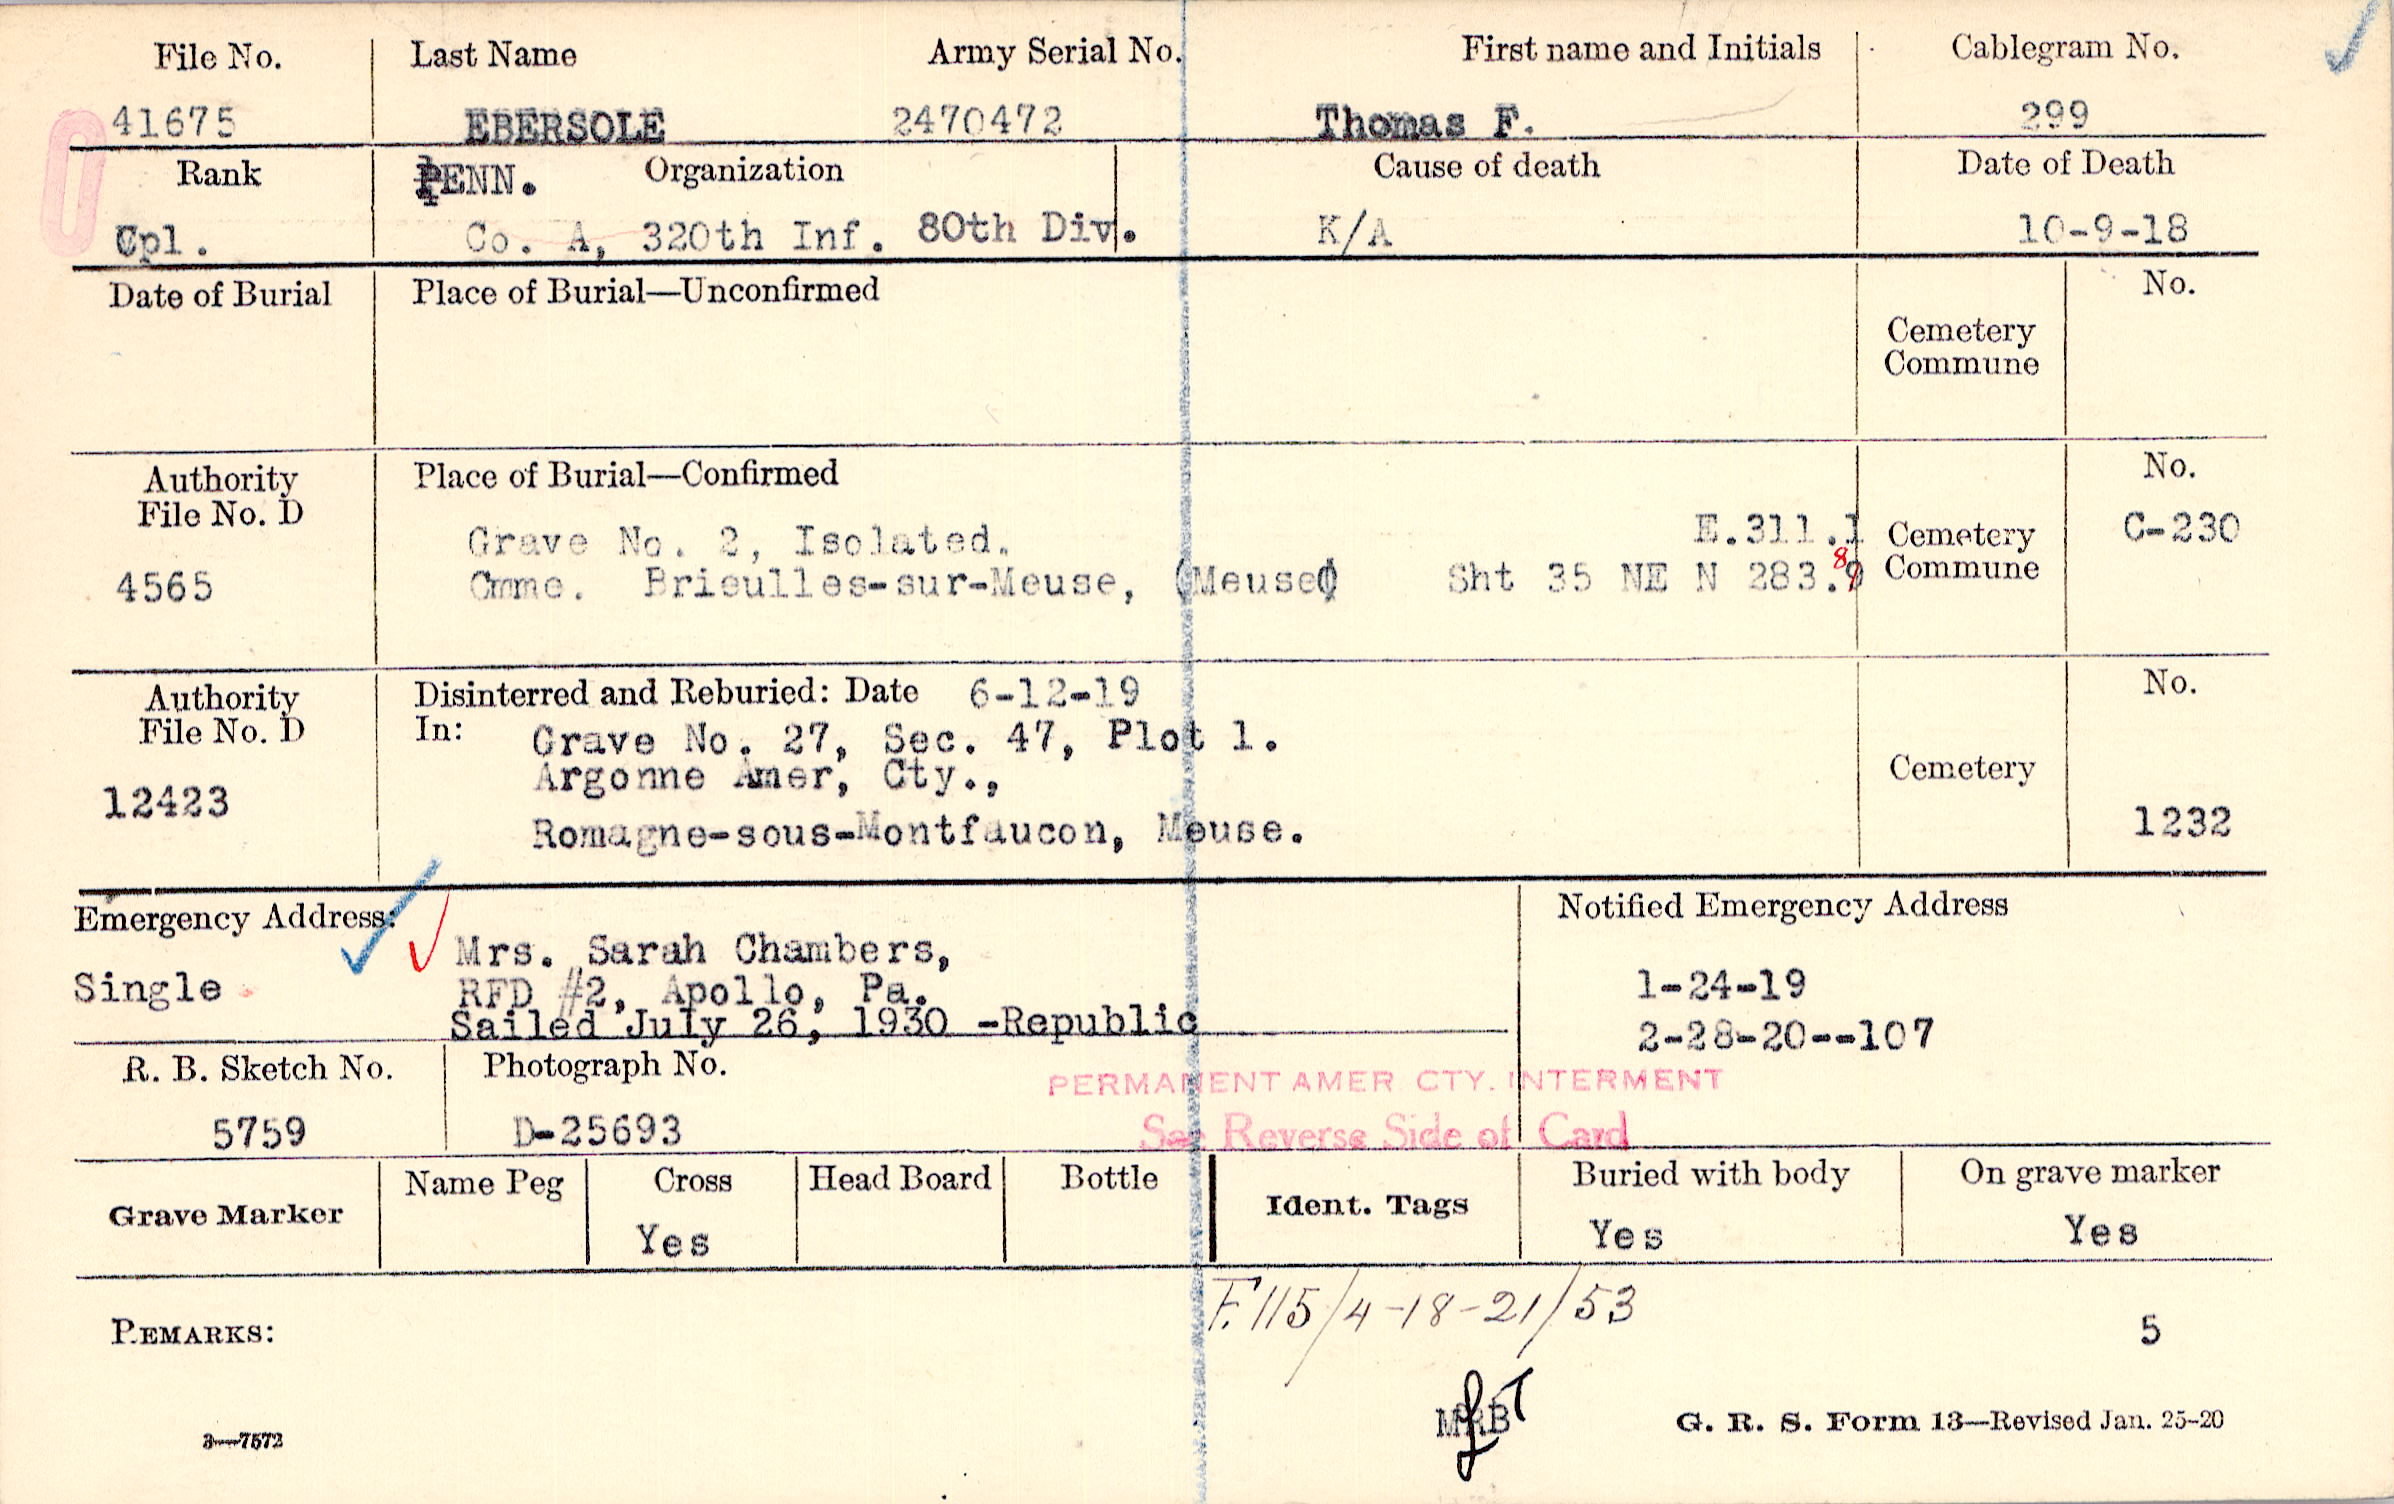 File No. Last Name Army Serial No. First name and Initials Cablegram No.
41675 EBERSOLE 2470472 Thomas F. 299
Rank PENN. Organization Cause of death Date of Death
Cpl. Co. A, 320th Inf. 80th Div. K/A 10-9-18
Date of Burial Place of Burial—Unconfirmed No.
Cemetery
Commune
Authority Place of Burial—Confirmed No.
File No. D
Grave No. 2, Isolated. E.311.1 Cemetery C-230
4565 Cmme. Brieulles-sur-Meuse, (Meuse) Sht 35 NE N 283.9 8 Commune
Authority Disinterred and Reburied: Date 6-12-19 No.
File No. D In: Grave No. 27, Sec. 47, Plot 1.
Argonne Amer, Cty., Cemetery
12423
Romagne-sous-Montfaucon, Meuse. 1232
Emergency Address: Notified Emergency Address
Mrs. Sarah Chambers,
Single RFD #2, Apollo, Pa. 1-24-19
Sailed July 26, 1930 -Republic 2-28-20--107
R. B. Sketch No. Photograph No.
PERMANENT AMER. CTY. INTERMENT
5759 D-25693 See Reverse Side of Card
Grave Marker Name Peg Cross Head Board Bottle Ident. Tags Buried with body On grave marker
Yes Yes Yes
F.115/4-18-21/53
REMARKS: 5
3—7572 G. R. S. Form 13—Revised Jan. 25-20